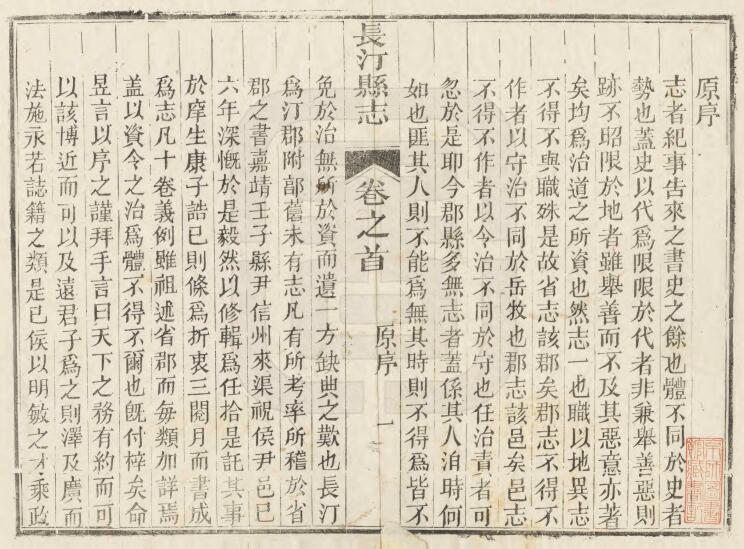 原序
志者紀事告來之書史之餘也體不同於史者
勢也蓋史以代爲限限於代者非兼舉善惡則
跡不昭限於地者雖舉善而不及其惡意亦著
矣均爲治道之所資也然志一也職以地異志
不得不與職殊是故省志該郡矣郡志不得不
作者以守治不同於岳牧也郡志該邑矣邑志
不得不作者以令治不同於守也任治責者可
忽於是耶今郡縣多無志者蓋係其人洎時何
如也匪其人則不能爲無其時則不得爲皆不
長汀縣志
卷之首
原序
一
免於治無所於資而遺一方缺典之歎也長汀
爲汀郡附部舊未有志凡有所考率所稽於省
郡之書嘉靖壬子縣尹信州來渠祝侯尹邑已
六年深慨於是毅然以修輯爲任拾是託其事
於庠生康子誥已則條爲折衷三閱月而書成
爲志凡十卷義例雖祖述省郡而每類加詳焉
蓋以資令之治爲體不得不爾也旣付梓矣命
昱言以序之謹拜手言曰天下之務有約而可
以該博近而可以及遠君子爲之則澤及廣而
法施永若誌籍之類是已侯以明敏之才乘政